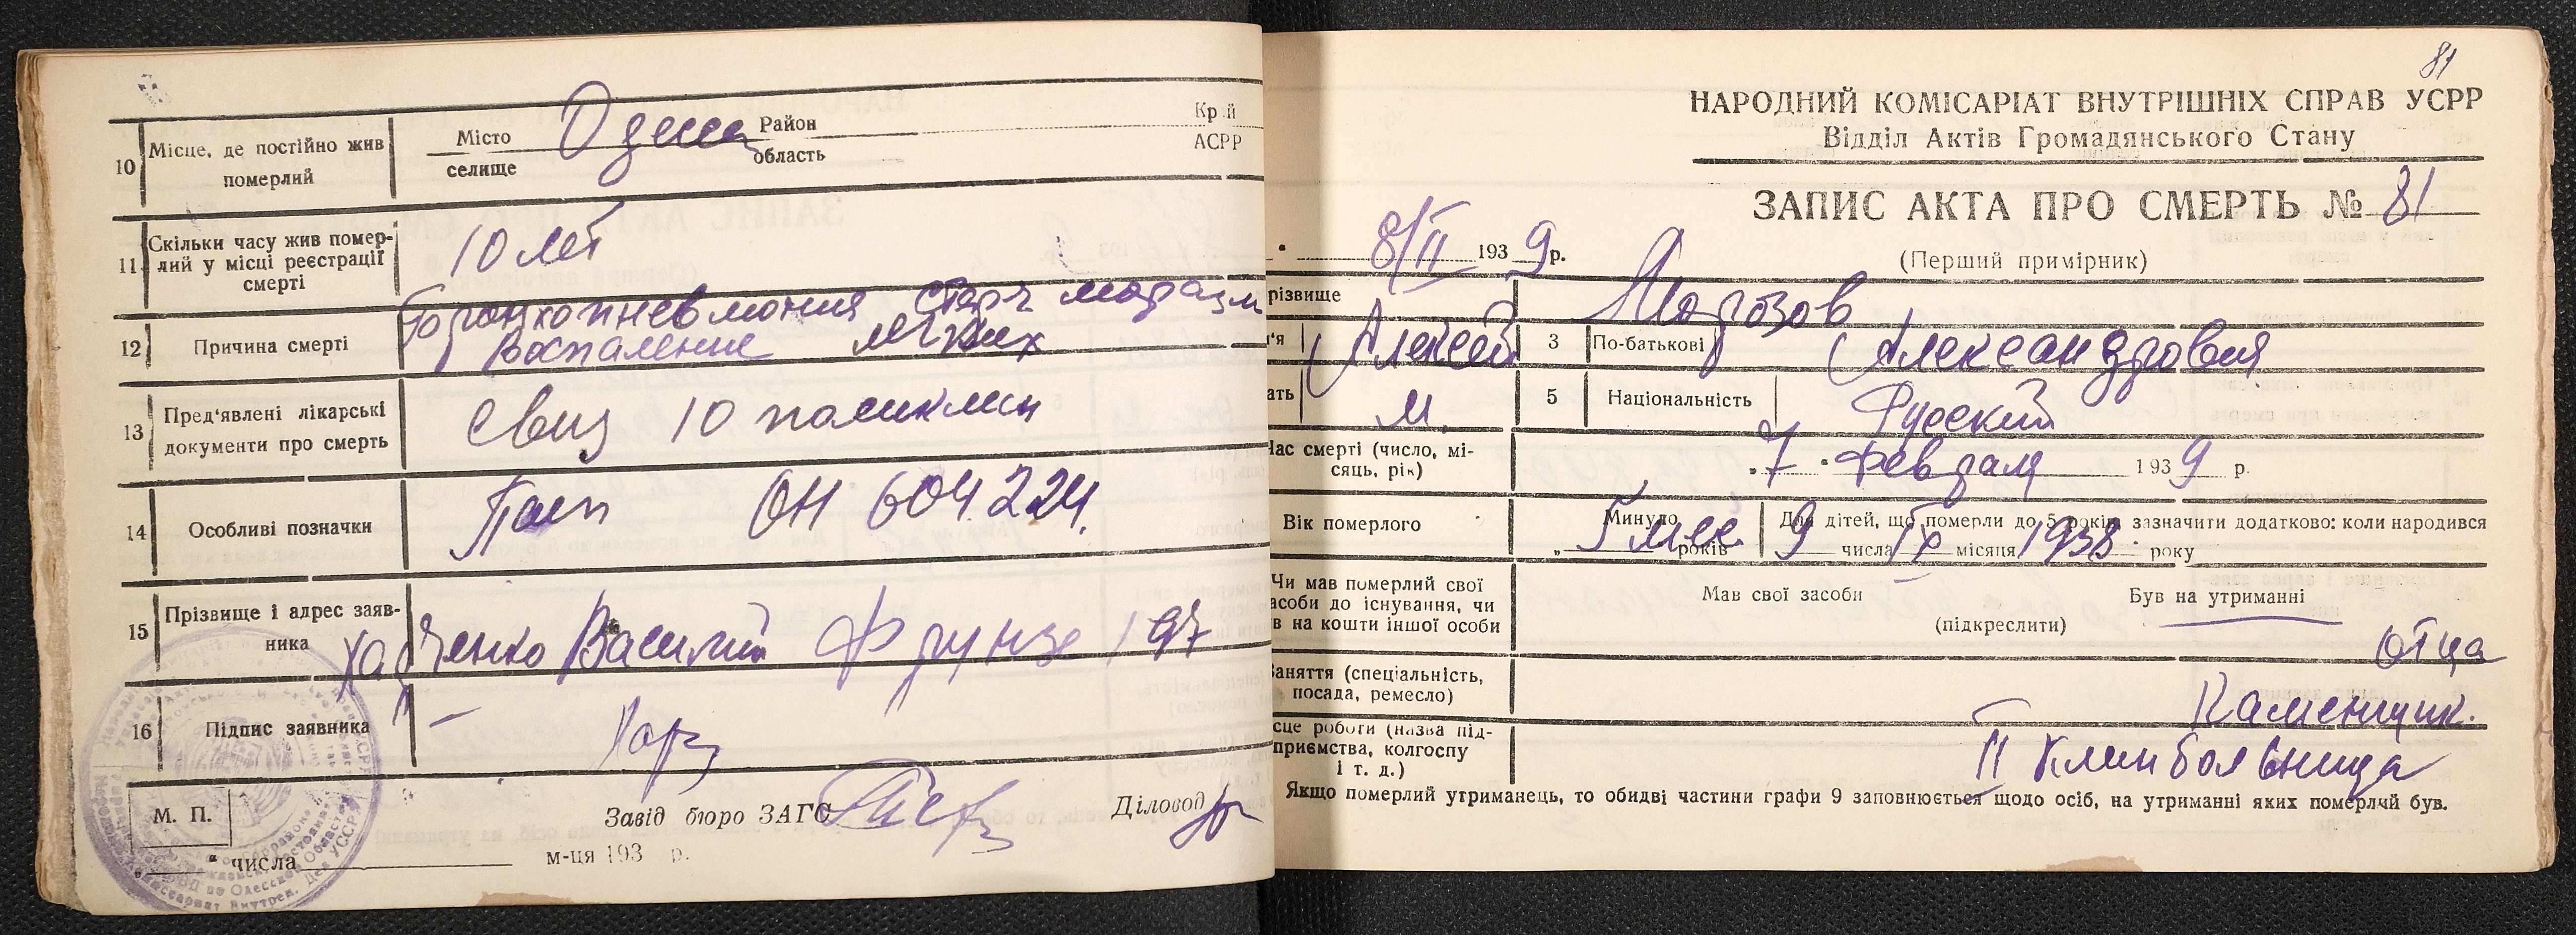 10 Місце, де постійно жив померлий
Місто селище Одесса Район область Край АСРР
11 Скільки часу жив помер-
лий у місці реєстрації
смерті
10 лет
12 Причина смерті
Воспаление легких
13 Пред'явлені лікарські
документи про смерть
Свид 10 поликлин
14 Особливі позначки
Пасп ОН 604224.
15 Прізвище і адрес заяв-
ника
Василий Фрунзе 197
16 Підпис заявника
М. П.
Завід бюро ЗАГС
Діловод
" числа м-ця 193 р.
81
НАРОДНИЙ КОМІСАРІАТ ВНУТРІШНІХ СПРАВ УСРР
Відділ Актів Громадянського Стану
ЗАПИС АКТА ПРО СМЕРТЬ № 81
8/II 1939 р.
(Перший примірник)
різвище Морозов
Алексей 3 По-батькові Александрович
ать м. 5 Національність Русский
Час смерті (число, мі-
сяць, рік)
„7" Февраля 1939 р.
Вік померлого
Минуло 5 мес. років
Для дітей, що померли до 5 років зазначити додатково: коли народився
9 числа IX місяця 1938 року
Чи мав померлий свої
асоби до існування, чи
в на кошти іншої особи
Мав свої засоби Був на утриманні
(підкреслити)
отца
аняття (спеціальність,
посада, ремесло)
Каменщик.
сце роботи (назва під-
приємства, колгоспу
і т. д.)
II Клинбольница
Якщо померлий утриманець, то обидві частини графи 9 заповнюється щодо осіб, на утриманні яких померлий був.